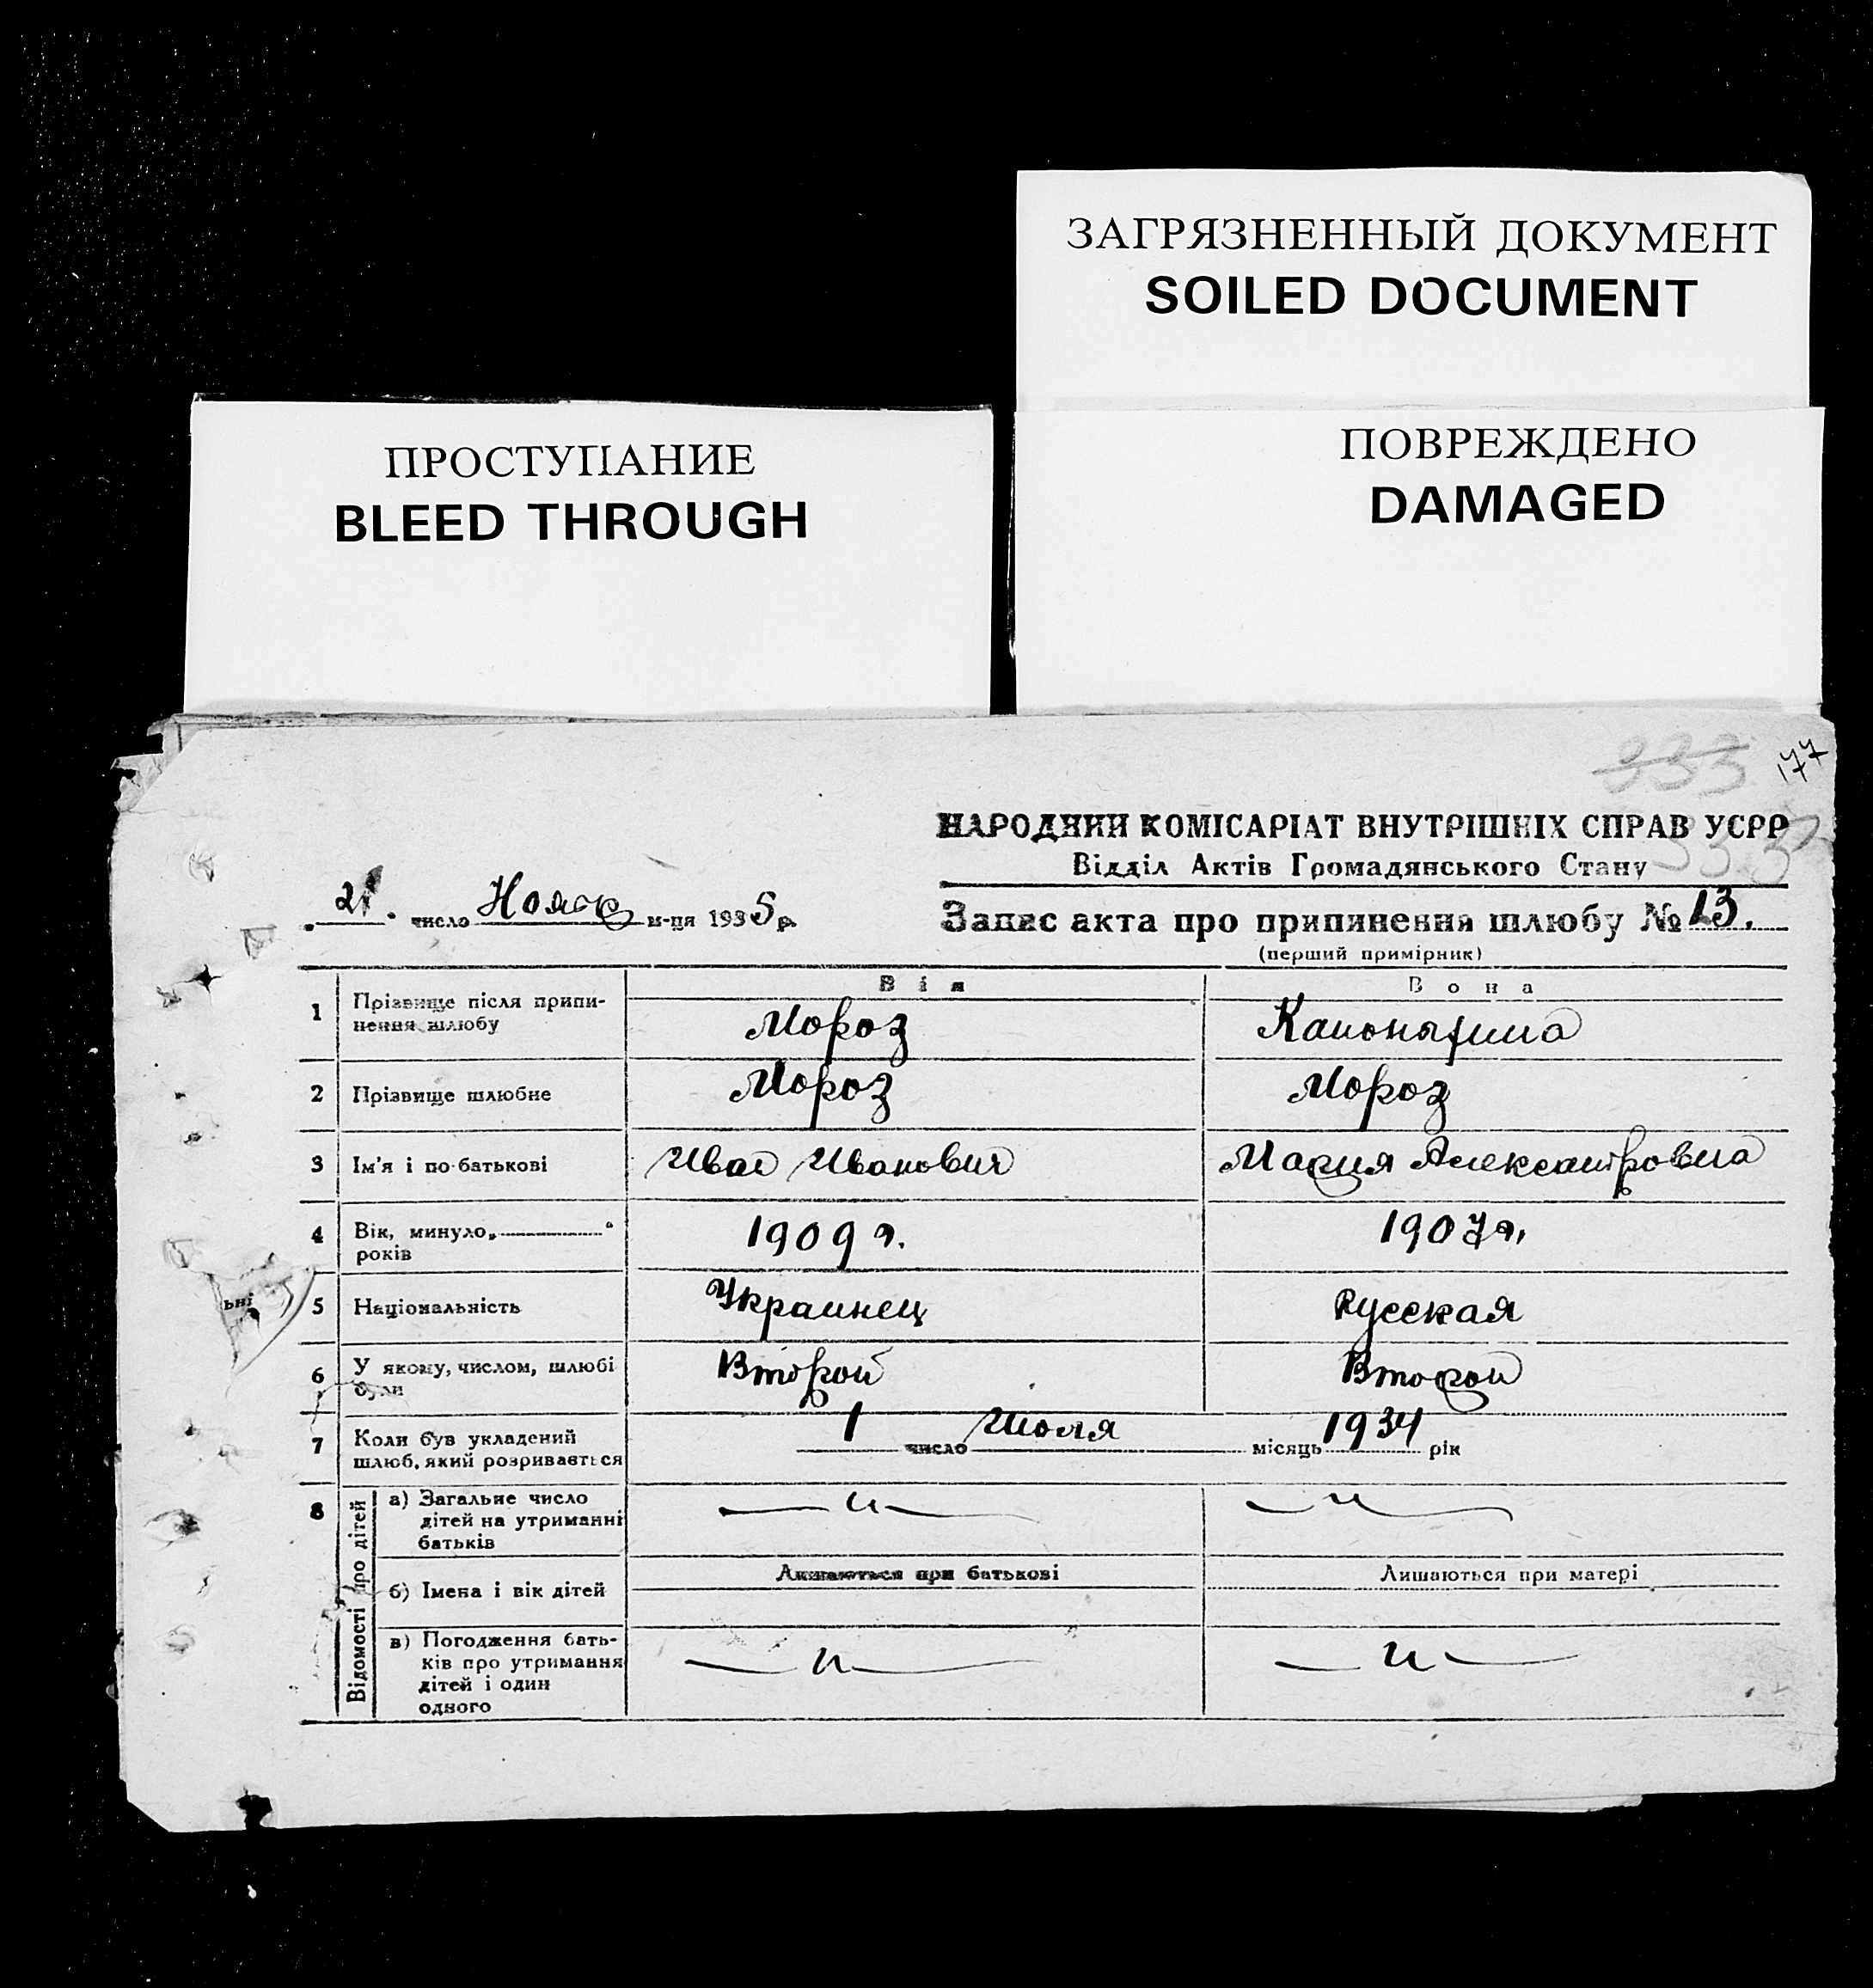 ЗАГРЯЗНЕННЫЙ ДОКУМЕНТ
SOILED DOCUMENT
ПРОСТУПАНИЕ
BLEED THROUGH
ПОВРЕЖДЕНО
DAMAGED
333 177
НАРОДНИЙ КОМІСАРІАТ ВНУТРІШНІХ СПРАВ УСРР
333
Відділ Актів Громадянського Стану
21. число Нояб м-ця 1935 р.
Запис акта про припинення шлюбу № 13.
(перший примірник)
Він Вона
1 Прізвище після припи-
нення шлюбу Мороз
2 Прізвище шлюбне Мороз Мороз
3 Ім'я і по-батькові Иван Иванович Мария Александровна
4 Вік, минуло „ “
років 1909 г. 1907 г.
ьні
5 Національність Украинец Русская
6 У якому, числом, шлюбі
були Второй Второй
7 Коли був укладений
шлюб, який розривається 1 число Июля місяць 1934 рік
8 Відомості про дітей
а) Загальне число
дітей на утриманні
батьків — „ — — „ —
Лишаються при батькові Лишаються при матері
б) Імена і вік дітей
в) Погодження бать-
ків про утримання
дітей і один
одного — „ — — „ —